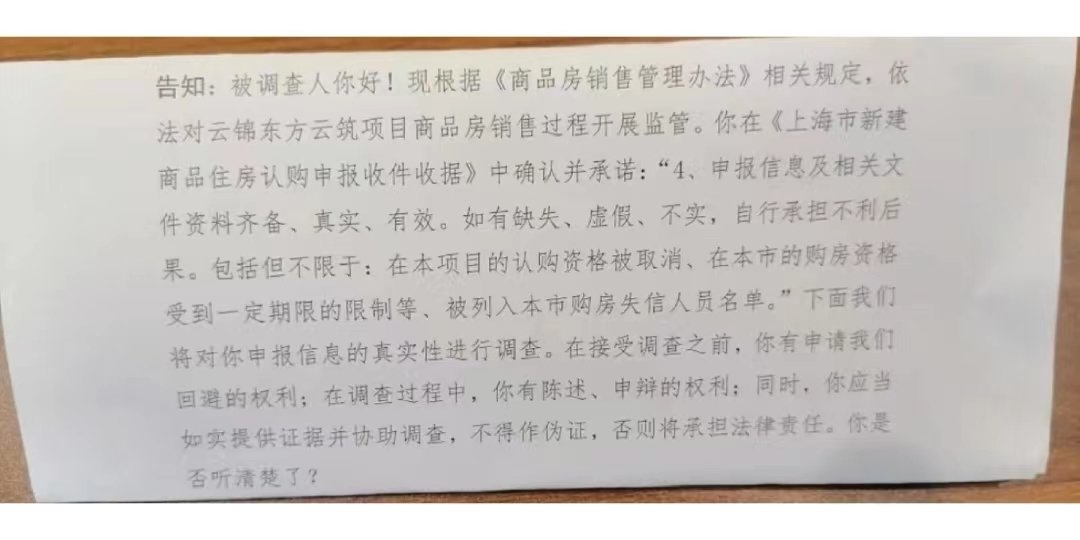 告知：被调查人你好！现根据《商品房销售管理办法》相关规定，依
法对云锦东方云筑项目商品房销售过程开展监管。你在《上海市新建
商品住房认购申报收件收据》中确认并承诺：“4、申报信息及相关文
件资料齐备、真实、有效。如有缺失、虚假、不实，自行承担不利后
果。包括但不限于：在本项目的认购资格被取消、在本市的购房资格
受到一定期限的限制等、被列入本市购房失信人员名单。”下面我们
将对你申报信息的真实性进行调查。在接受调查之前，你有申请我们
回避的权利；在调查过程中，你有陈述、申辩的权利；同时，你应当
如实提供证据并协助调查，不得作伪证，否则将承担法律责任。你是
否听清楚了？